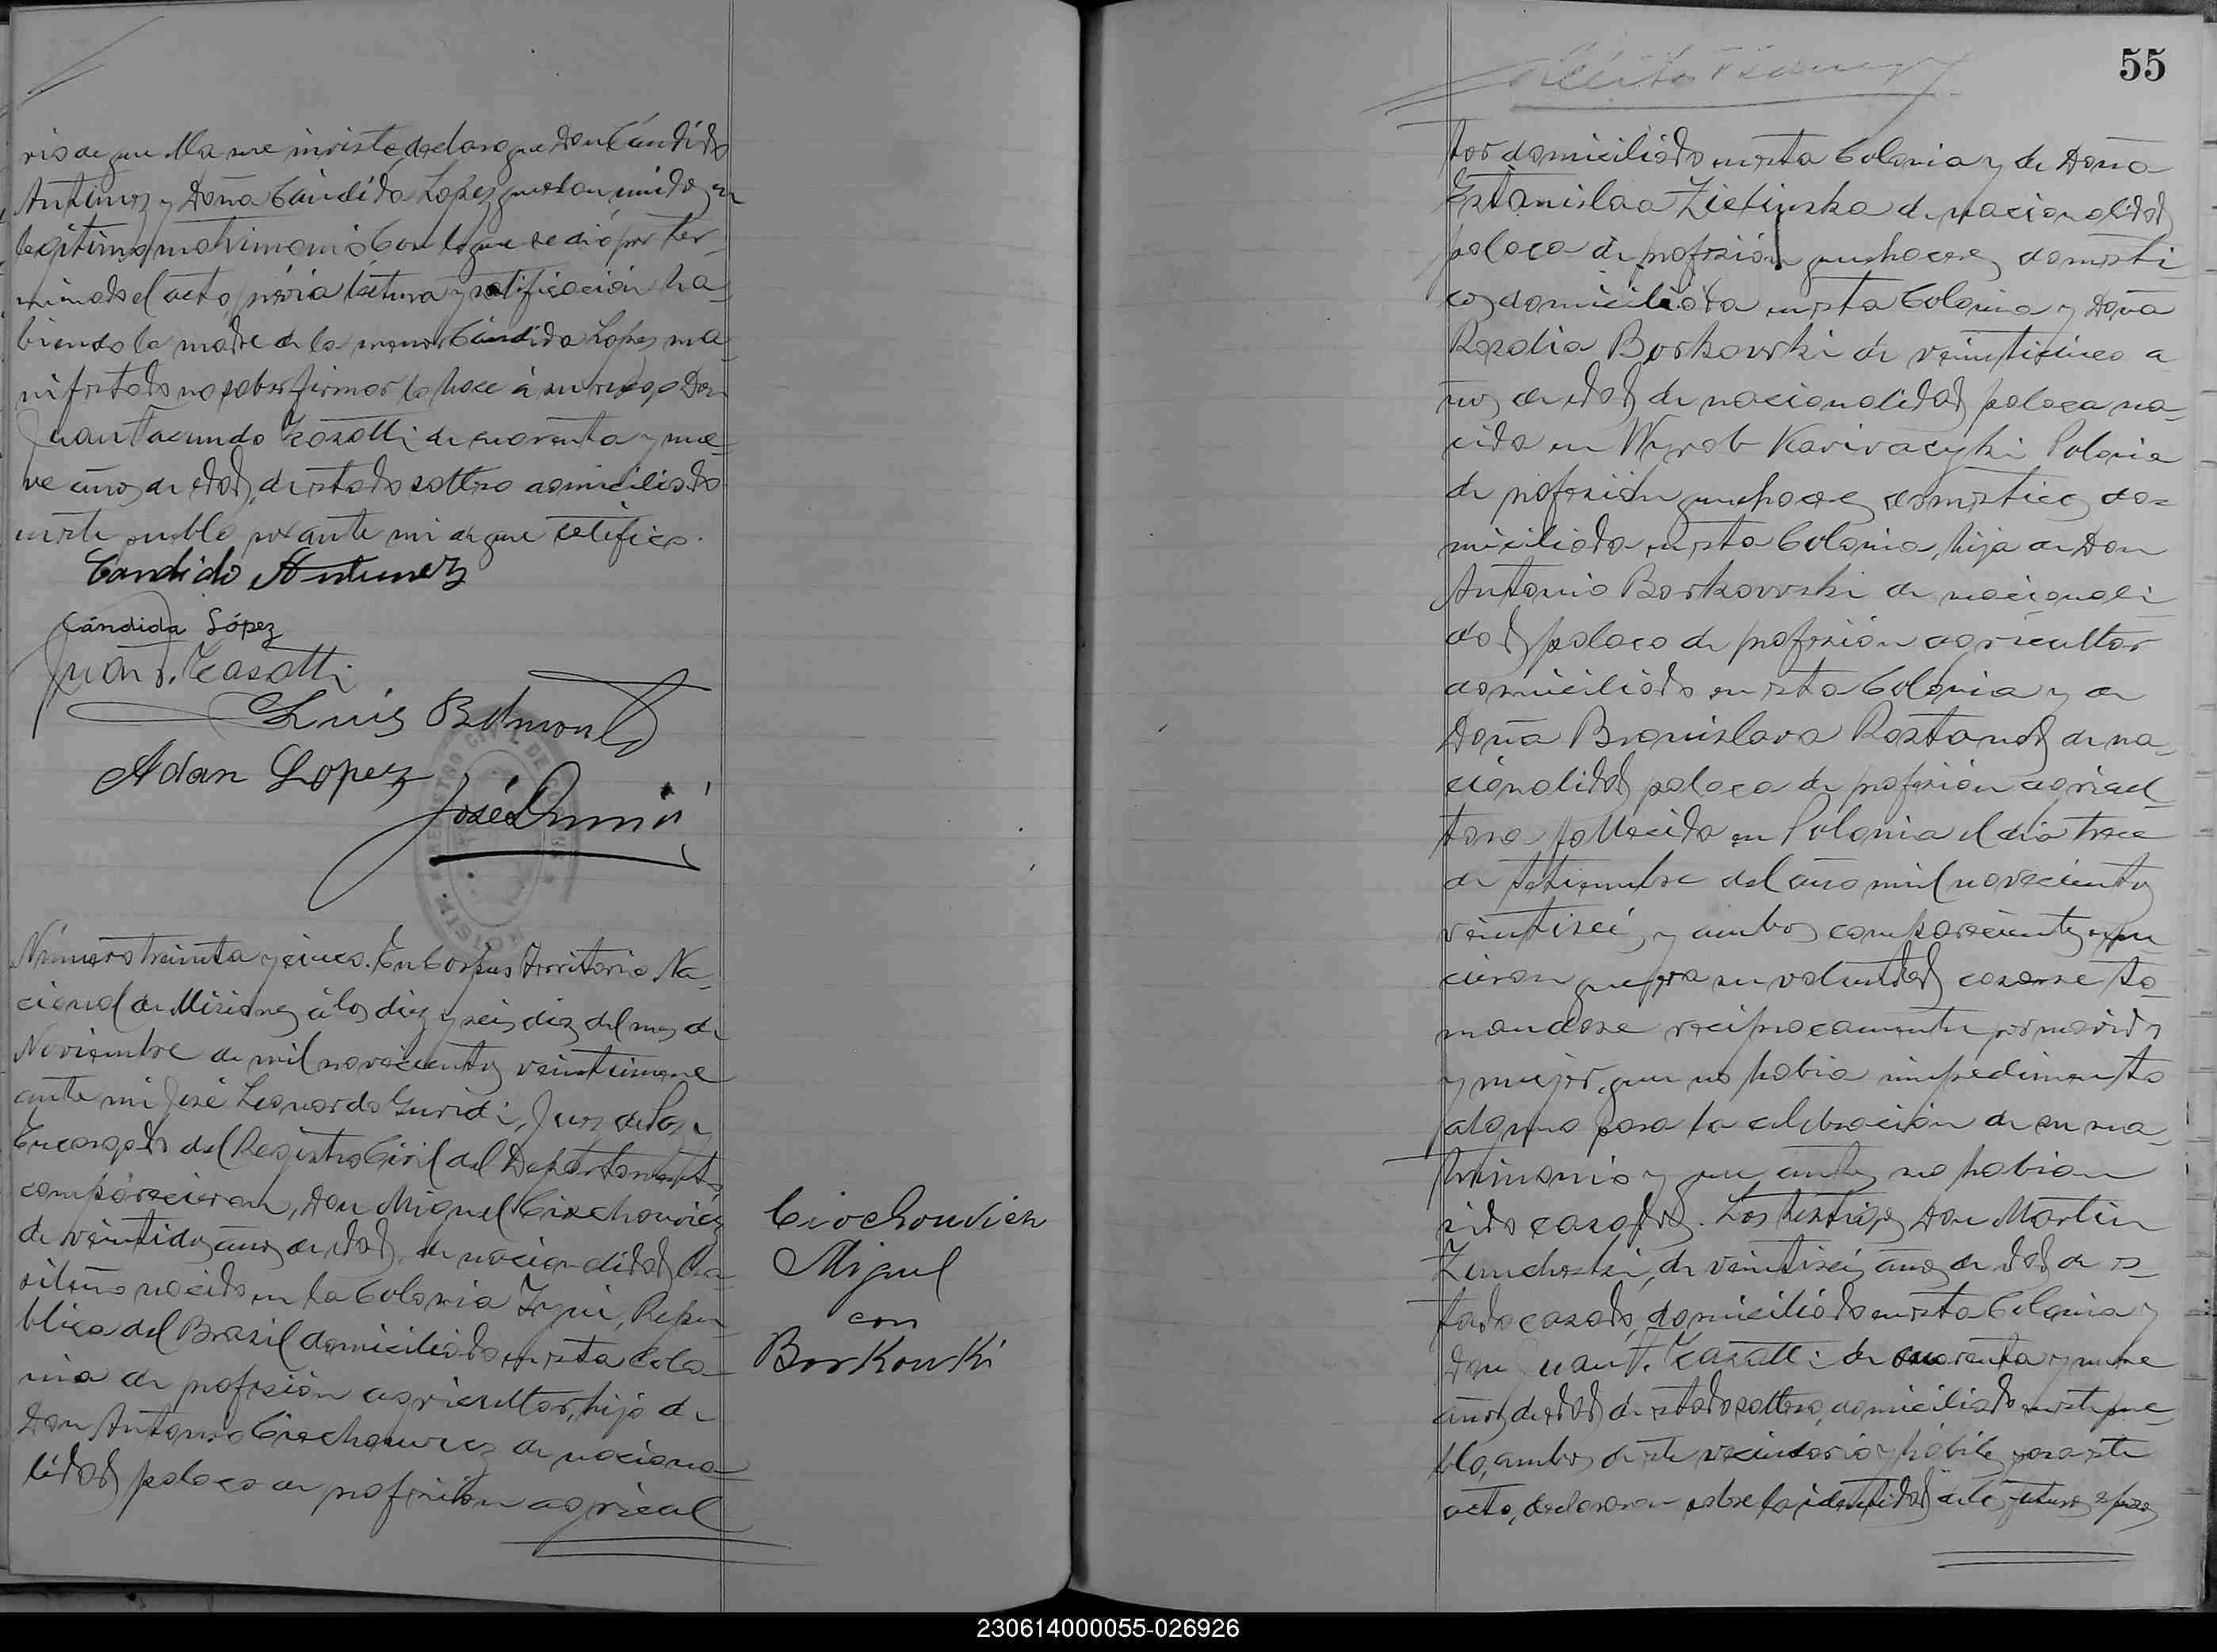 rio de que Ella me inviste declaro que Don Cándido
Antunez y Doña Cándida López quedan unidos en
legítimo matrimonio Con lo que se dió por ter-
minado el acto, prévia lectura y ratificación ha-
biendo la madre de la menor Cándida Lopez ma-
nifestado no saber firmar lo hace á su ruego Don
Juan Facundo Zasatti de cuarenta y nue-
ve años de edad, de estado soltero domiciliado
en este pueblo por ante mi de que certifico.
Candido Antunez
Cándida López
Juan F.
Luis
Adan Lopez
José
Número treinta y cinco. En Corpus Territorio Na-
cional de Misiones á los diez y seis dias del mes de
Noviembre de mil novecientos veintinueve
ante mi José Leonardo Guridi, Juez de Paz y
Encargado del Registro Civil del Departamento,
comparecieron, Don Miguel Ciechowicz
de veintidos años de edad, de nacionalidad bra-
sileño nacido en la Colonia Iyui, Repu-
blica del Brasil domiciliado en esta Colo-
nia de profesión agricultor, hijo de
Don Antonio Ciechowicz de naciona-
lidad polaco de profesión agricul
Ciochouvicz
Miguel
con
Borkouvki
55
tor domiciliado en esta Colonia y de Doña
Estanislaa Zielinska de nacionalidad
polaca de profesión quehaceres domesti
cos domiciliada en esta Colonia y Doña
Rosalia Borkowski de veinticinco a
ños de edad de nacionalidad polaca na-
cida en Polonia
de profesión quehaceres domesticos do-
miciliada en esta Colonia, hija de Don
Antonio Borkowski de nacionali
dad polaco de profesión agricultor
domiciliado en esta Colonia y de
Doña Bronislava de na-
cionalidad polaca de profesión agricul-
tora fallecida en Polonia el dia trece
de Setiembre del año mil novecientos
veintiseis, y ambos comparecientes expu
cieron que era su voluntad casarse to-
mandose reciprocamente por marido
y mujer, que no habia impedimento
alguno para la celebración de su ma-
trimonio y que antes no habian
sido casados. Los testigos Don Martin
de veintiseis años de edad de es-
tado casado, domiciliado en esta Colonia y
Don Juan F. Zasatti de cuarenta y nueve
años de edad de estado soltero, domiciliado en este pue-
blo, ambos de este vecindario y hábiles para este
acto, declararon sobre la identidad de los futuros esposos
230614000055-026926